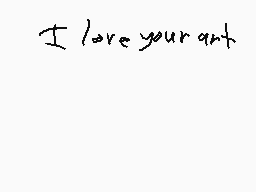 I love your art